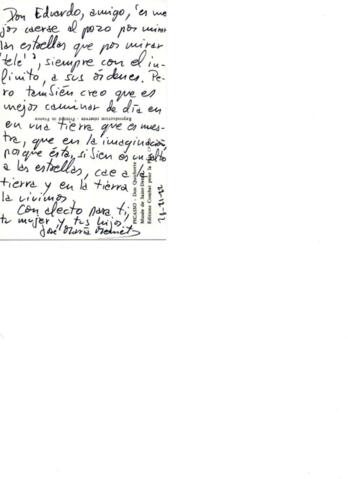 Don Eduardo, amigo, "es me
jor caerse al pozo por mirar
las estrellas que por mirar
'tele'", siempre con el in-
finito, a sus órdenes. Pe-
ro también creo que es
mejor caminar de día en
en una tierra que es nues-
tra, que en la imaginación
porque ésta, si bien es un salto
a las estrellas, cae a
tierra y en la tierra
la vivimos.
Con afecto para ti,
tu mujer y tus hijos,
José María
Reproduction interdite - Printed in France
PICASSO - Don Quichotte
Musée de Saint-Denis
Editions Combat pour la